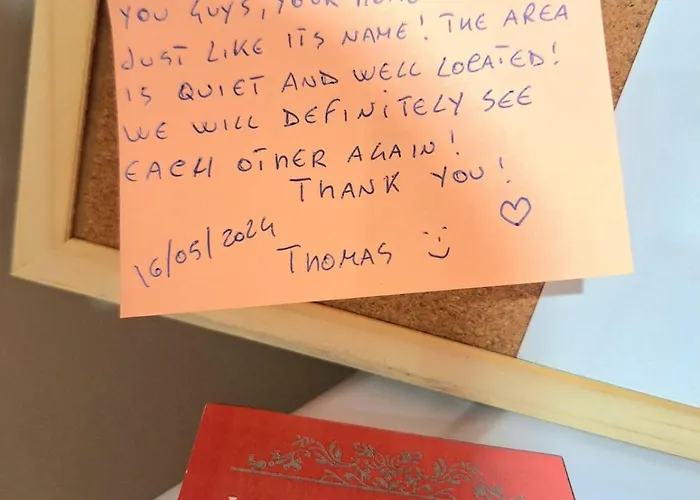 YOU GUYS, YOUR HOME
JUST LIKE ITS NAME! THE AREA
IS QUIET AND WELL LOCATED!
WE WILL DEFINITELY SEE
EACH OTHER AGAIN!
THANK YOU!
16/05/2024
THOMAS